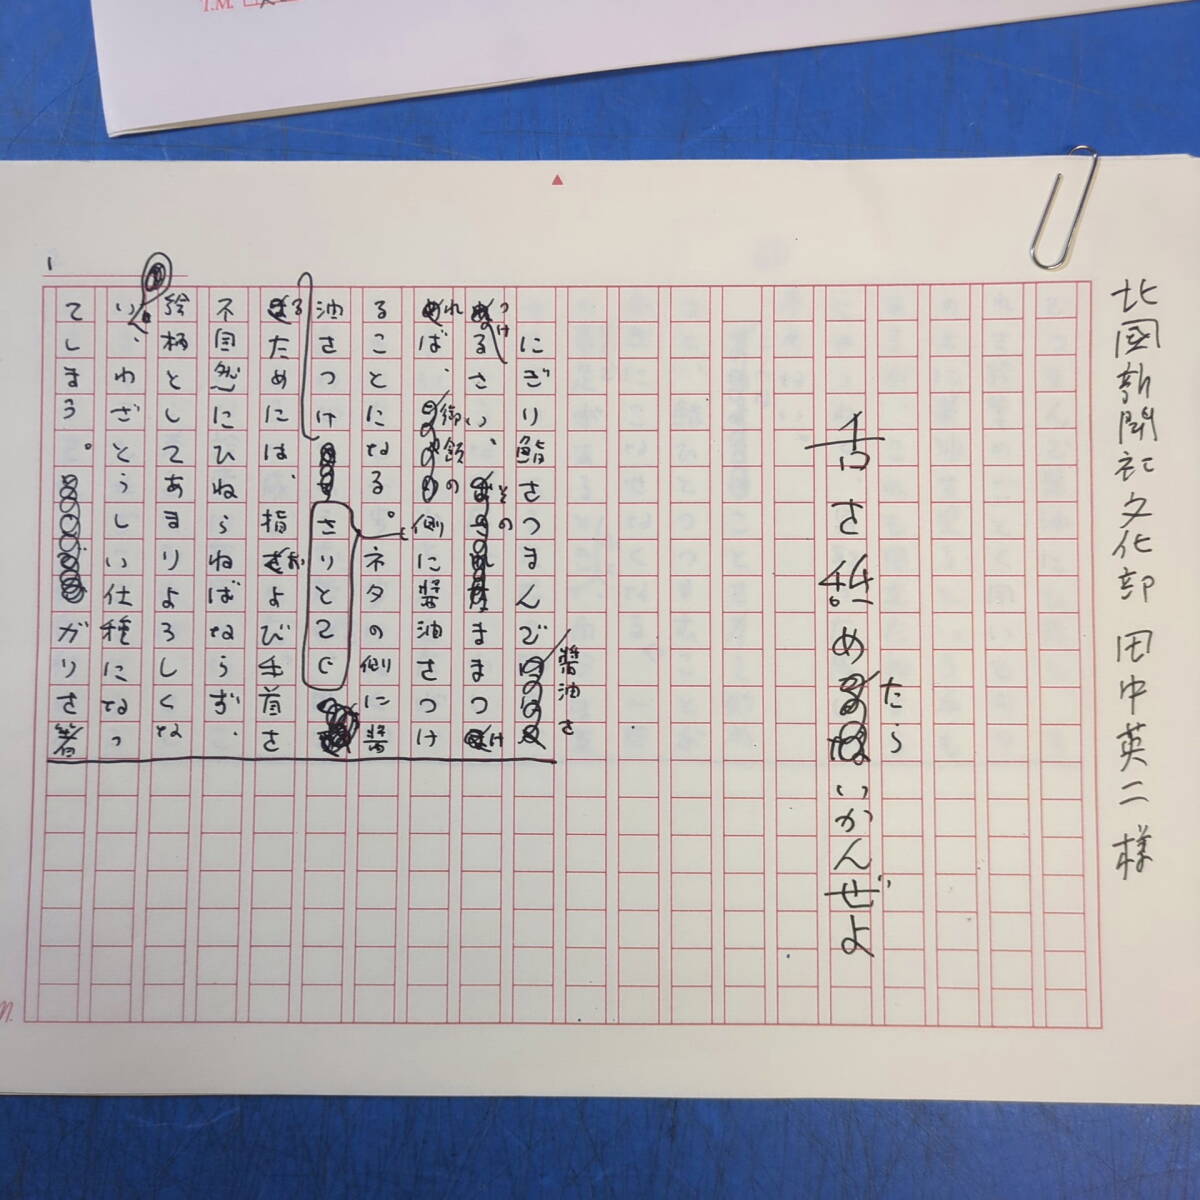 北國新聞社文化部 田中英二様
舌を甜めたらいかんぜよ
にぎり鮨をつまんで醤油を
つけるさい、そのままつけ
れば、御飯の側に醤油をつけ
ることになる。ネタの側に醤
油をつけ
さりとて
るためには、指および手首を
不自然にひねらねばならず、
絵柄としてあまりよろしくな
い、わざとらしい仕種になっ
てしまう。ガリを箸
1